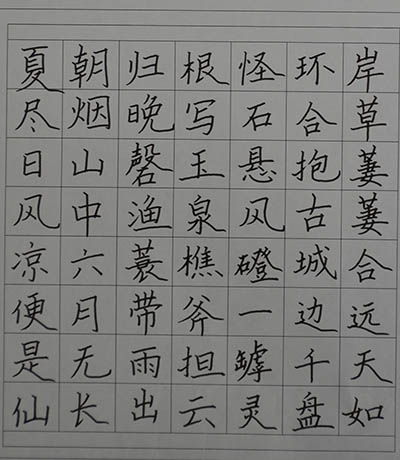 岸草萋萋合远天如
环合抱古城边千盘
怪石悬风磴一罅灵
根写玉泉樵斧担云
归晚磬渔蓑带雨出
朝烟山中六月无长
夏尽日风凉便是仙